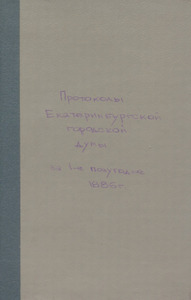 Протоколы
Екатеринбургской
городской
думы
за 1-е полугодие
1886 г.